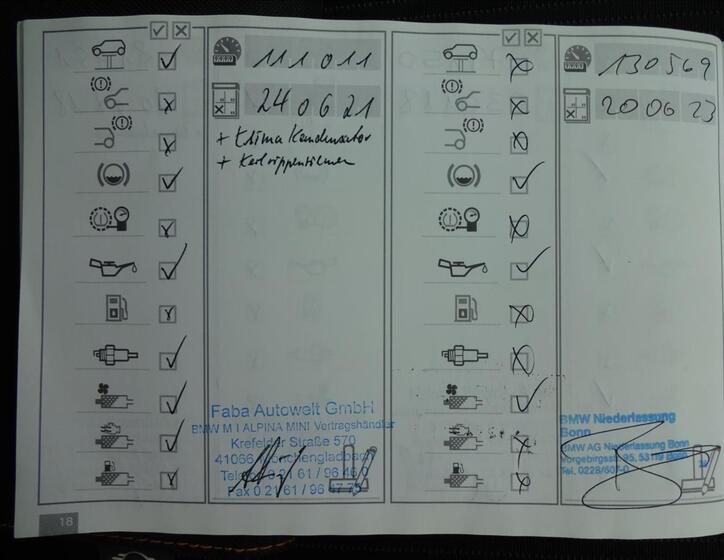 111 011
24 06 21
+ Klima Kondensator
+ Keilrippenriemen
Faba Autowelt GmbH
BMW M I ALPINA MINI Vertragshändler
Krefelder Straße 570
41066 Mönchengladbach
Telefon 0 21 61 / 96 46 0
Fax 0 21 61 / 96
18
130569
20 06 23
BMW Niederlassung
Bonn
BMW AG Niederlassung Bonn
Vorgebirgsstr. 95, 53119 Bonn
Tel. 0228/607-0